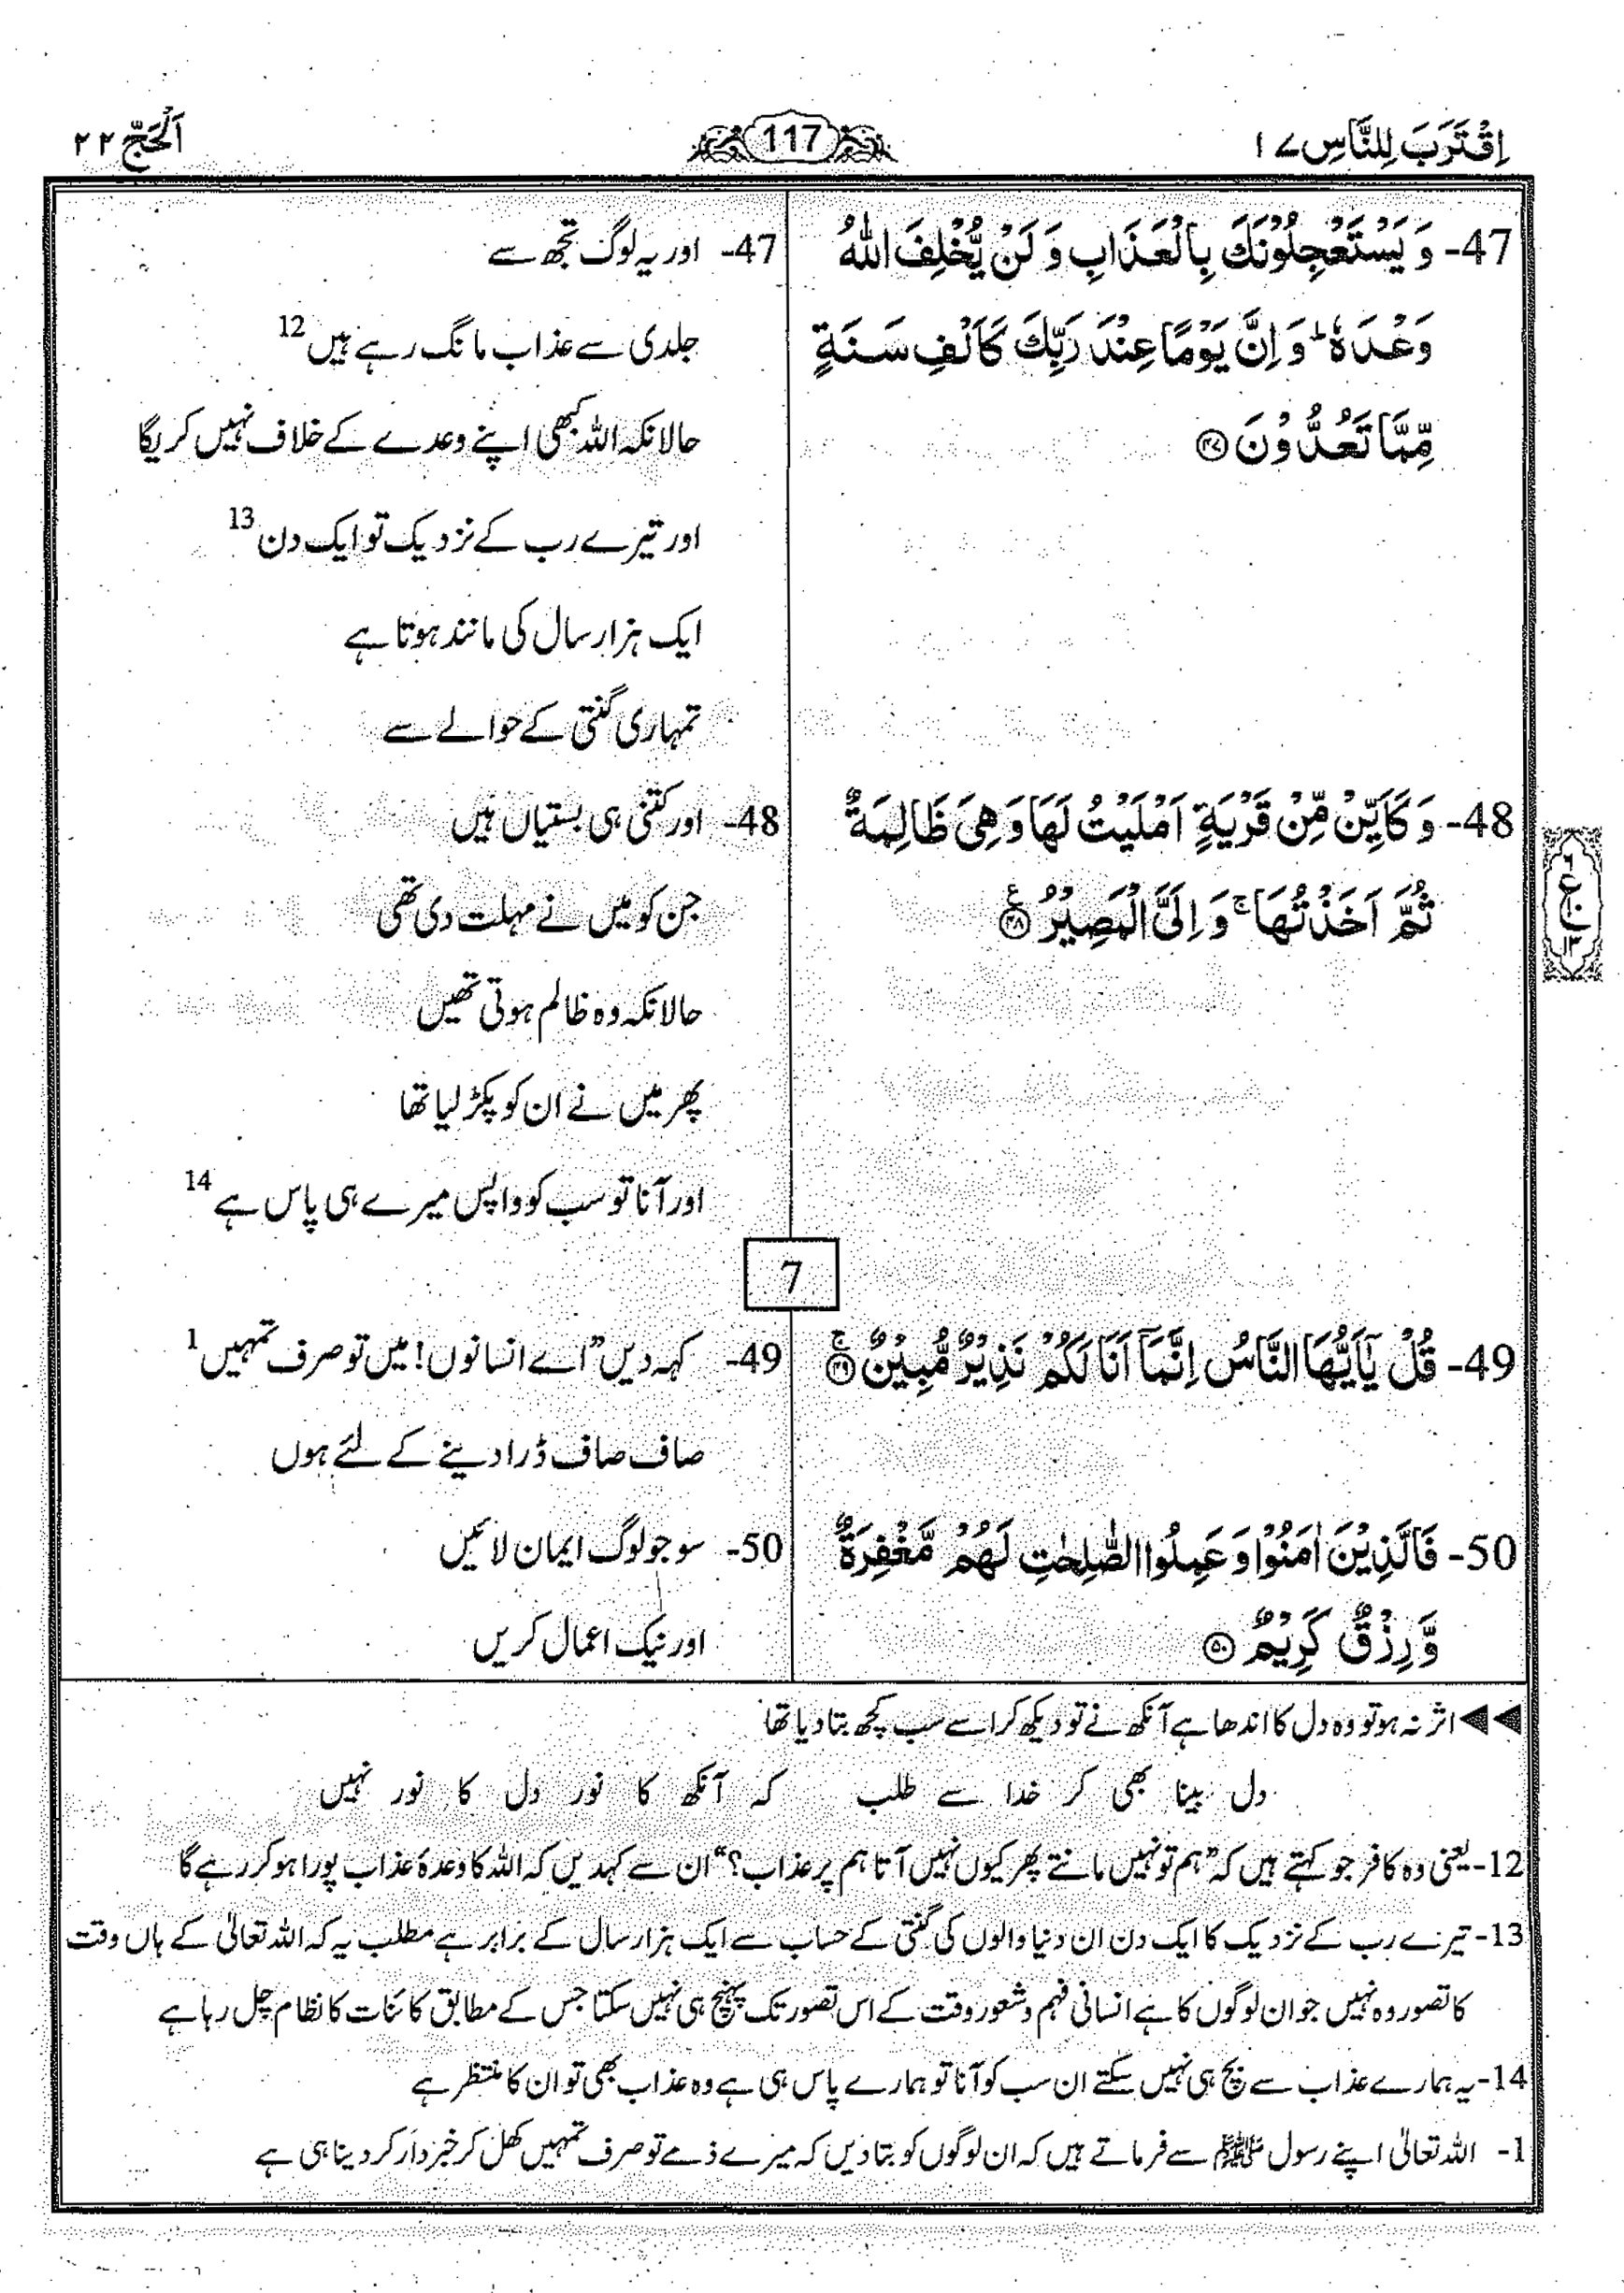 اِقْتَرَبَ لِلنَّاسِ ۱۷
117
اَلْحَجّ ۲۲
47- وَ يَسْتَعْجِلُوْنَكَ بِالْعَذَابِ وَ لَنْ يُّخْلِفَ اللّٰهُ
وَعْدَهٗ ؕ وَ اِنَّ يَوْمًا عِنْدَ رَبِّكَ كَاَلْفِ سَنَةٍ
مِّمَّا تَعُدُّوْنَ ﴿۴۷﴾
47- اور یہ لوگ تجھ سے
جلدی سے عذاب مانگ رہے ہیں 12
حالانکہ اللہ کبھی اپنے وعدے کے خلاف نہیں کریگا
اور تیرے رب کے نزدیک تو ایک دن 13
ایک ہزار سال کی مانند ہوتا ہے
تمہاری گنتی کے حوالے سے
48- وَ كَاَيِّنْ مِّنْ قَرْيَةٍ اَمْلَيْتُ لَهَا وَ هِيَ ظَالِمَةٌ
ثُمَّ اَخَذْتُهَا ۚ وَ اِلَيَّ الْمَصِيْرُ ﴿۴۸﴾ ع
48- اور کتنی ہی بستیاں ہیں
جن کو میں نے مہلت دی تھی
حالانکہ وہ ظالم ہوتی تھیں
پھر میں نے ان کو پکڑ لیا تھا
اور آنا تو سب کو واپس میرے ہی پاس ہے 14
7
49- قُلْ يٰۤاَيُّهَا النَّاسُ اِنَّمَاۤ اَنَا لَكُمْ نَذِيْرٌ مُّبِيْنٌ ﴿۴۹﴾ ۚ
49- کہہ دیں ”اے انسانوں! میں تو صرف تمہیں 1
صاف صاف ڈرا دینے کے لئے ہوں
50- فَالَّذِيْنَ اٰمَنُوْا وَ عَمِلُوا الصّٰلِحٰتِ لَهُمْ مَّغْفِرَةٌ
وَّ رِزْقٌ كَرِيْمٌ ﴿۵۰﴾
50- سو جو لوگ ایمان لائیں
اور نیک اعمال کریں
◀◀ اثر نہ ہو تو وہ دل کا اندھا ہے آنکھ نے تو دیکھ کر اسے سب کچھ بتا دیا تھا
دل بینا بھی کر خدا سے طلب کہ آنکھ کا نور دل کا نور نہیں
12- یعنی وہ کافر جو کہتے ہیں کہ ”ہم تو نہیں مانتے پھر کیوں نہیں آتا ہم پر عذاب؟“ ان سے کہدیں کہ اللہ کا وعدۂ عذاب پورا ہو کر رہے گا
13- تیرے رب کے نزدیک کا ایک دن ان دنیا والوں کی گنتی کے حساب سے ایک ہزار سال کے برابر ہے مطلب یہ کہ اللہ تعالیٰ کے ہاں وقت
کا تصور وہ نہیں جو ان لوگوں کا ہے انسانی فہم و شعور وقت کے اس تصور تک پہنچ ہی نہیں سکتا جس کے مطابق کائنات کا نظام چل رہا ہے
14- یہ ہمارے عذاب سے بچ ہی نہیں سکتے ان سب کو آنا تو ہمارے پاس ہی ہے وہ عذاب بھی تو ان کا منتظر ہے
1- اللہ تعالیٰ اپنے رسول ﷺ سے فرماتے ہیں کہ ان لوگوں کو بتا دیں کہ میرے ذمے تو صرف تمہیں کھل کر خبردار کر دینا ہی ہے